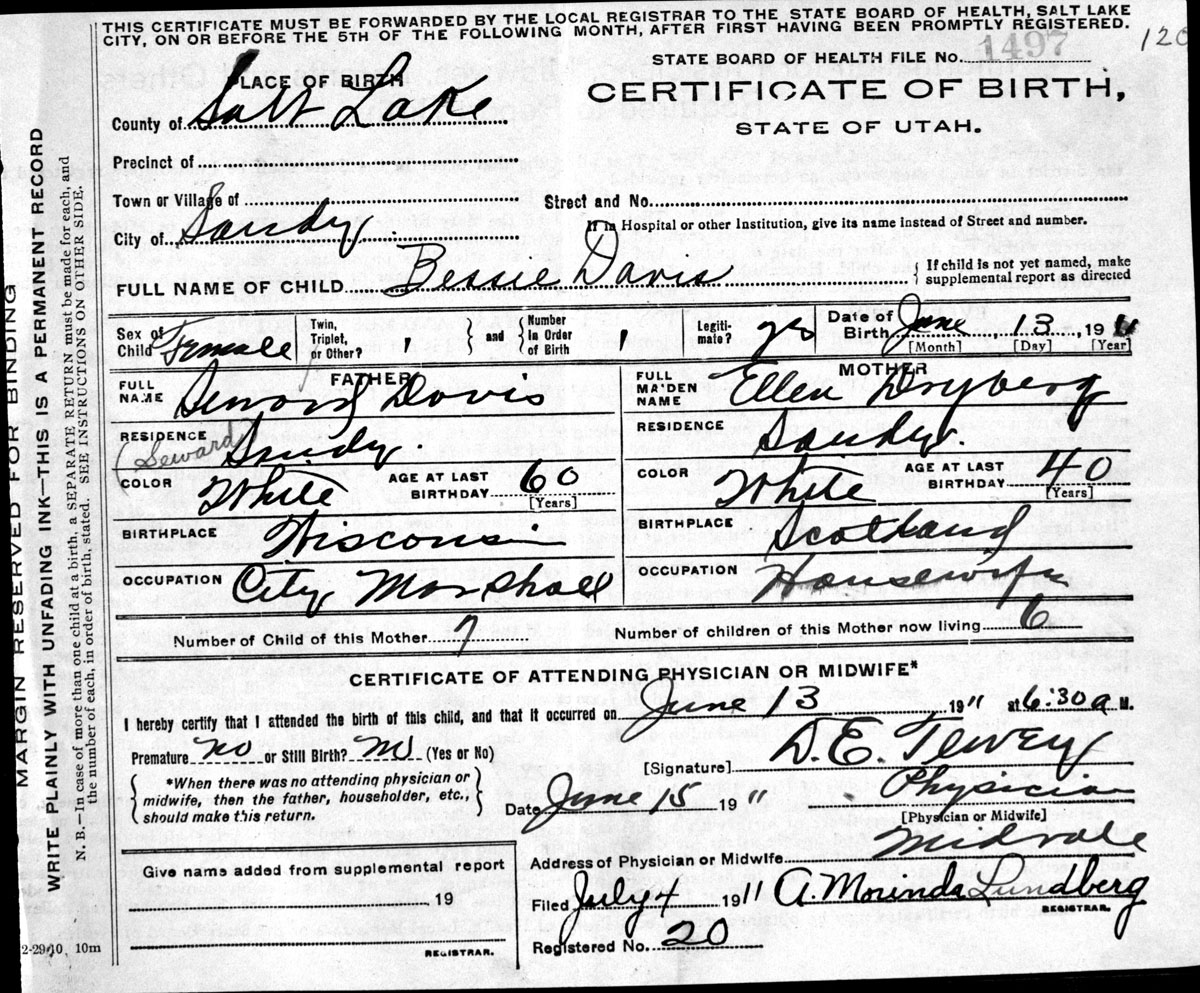 THIS CERTIFICATE MUST BE FORWARDED BY THE LOCAL REGISTRAR TO THE STATE BOARD OF HEALTH, SALT LAKE
CITY, ON OR BEFORE THE 5TH OF THE FOLLOWING MONTH, AFTER FIRST HAVING BEEN PROMPTLY REGISTERED.
120
STATE BOARD OF HEALTH FILE No. 1497
PLACE OF BIRTH
CERTIFICATE OF BIRTH,
STATE OF UTAH.
County of Salt Lake
Precinct of
Town or Village of
Street and No.
City of Sandy.
If in Hospital or other Institution, give its name instead of Street and number.
FULL NAME OF CHILD Bessie Davis
If child is not yet named, make
supplemental report as directed
Sex of Child Female
Twin, Triplet, or Other?
and
Number In Order of Birth
Legiti-mate? yes
Date of Birth June 13 1911
[Month] [Day] [Year]
FATHER
FULL NAME Seword Davis
(Seward)
RESIDENCE Sandy.
COLOR White
AGE AT LAST BIRTHDAY 60
[Years]
BIRTHPLACE Wisconsin
OCCUPATION City Marshall
MOTHER
FULL MAIDEN NAME Ellen Dryberg
RESIDENCE Sandy.
COLOR White
AGE AT LAST BIRTHDAY 40
[Years]
BIRTHPLACE Scotland
OCCUPATION Housewife
Number of Child of this Mother 7
Number of children of this Mother now living 6
CERTIFICATE OF ATTENDING PHYSICIAN OR MIDWIFE*
I hereby certify that I attended the birth of this child, and that it occurred on June 13 1911 at 6:30 a M.
Premature no or Still Birth? no (Yes or No)
*When there was no attending physician or
midwife, then the father, householder, etc.,
should make this return.
[Signature] D. E. Tewey
Date June 15 1911
Physician
[Physician or Midwife]
Address of Physician or Midwife Midvale
Give name added from supplemental report
19
REGISTRAR.
Filed July 4 1911 A. Morinda Lundberg
REGISTRAR.
Registered No. 20
2-29-10, 10m
MARGIN RESERVED FOR BINDING
WRITE PLAINLY WITH UNFADING INK—THIS IS A PERMANENT RECORD
N. B.—In case of more than one child at a birth, a SEPARATE RETURN must be made for each, and
the number of each, in order of birth, stated. SEE INSTRUCTIONS ON OTHER SIDE.